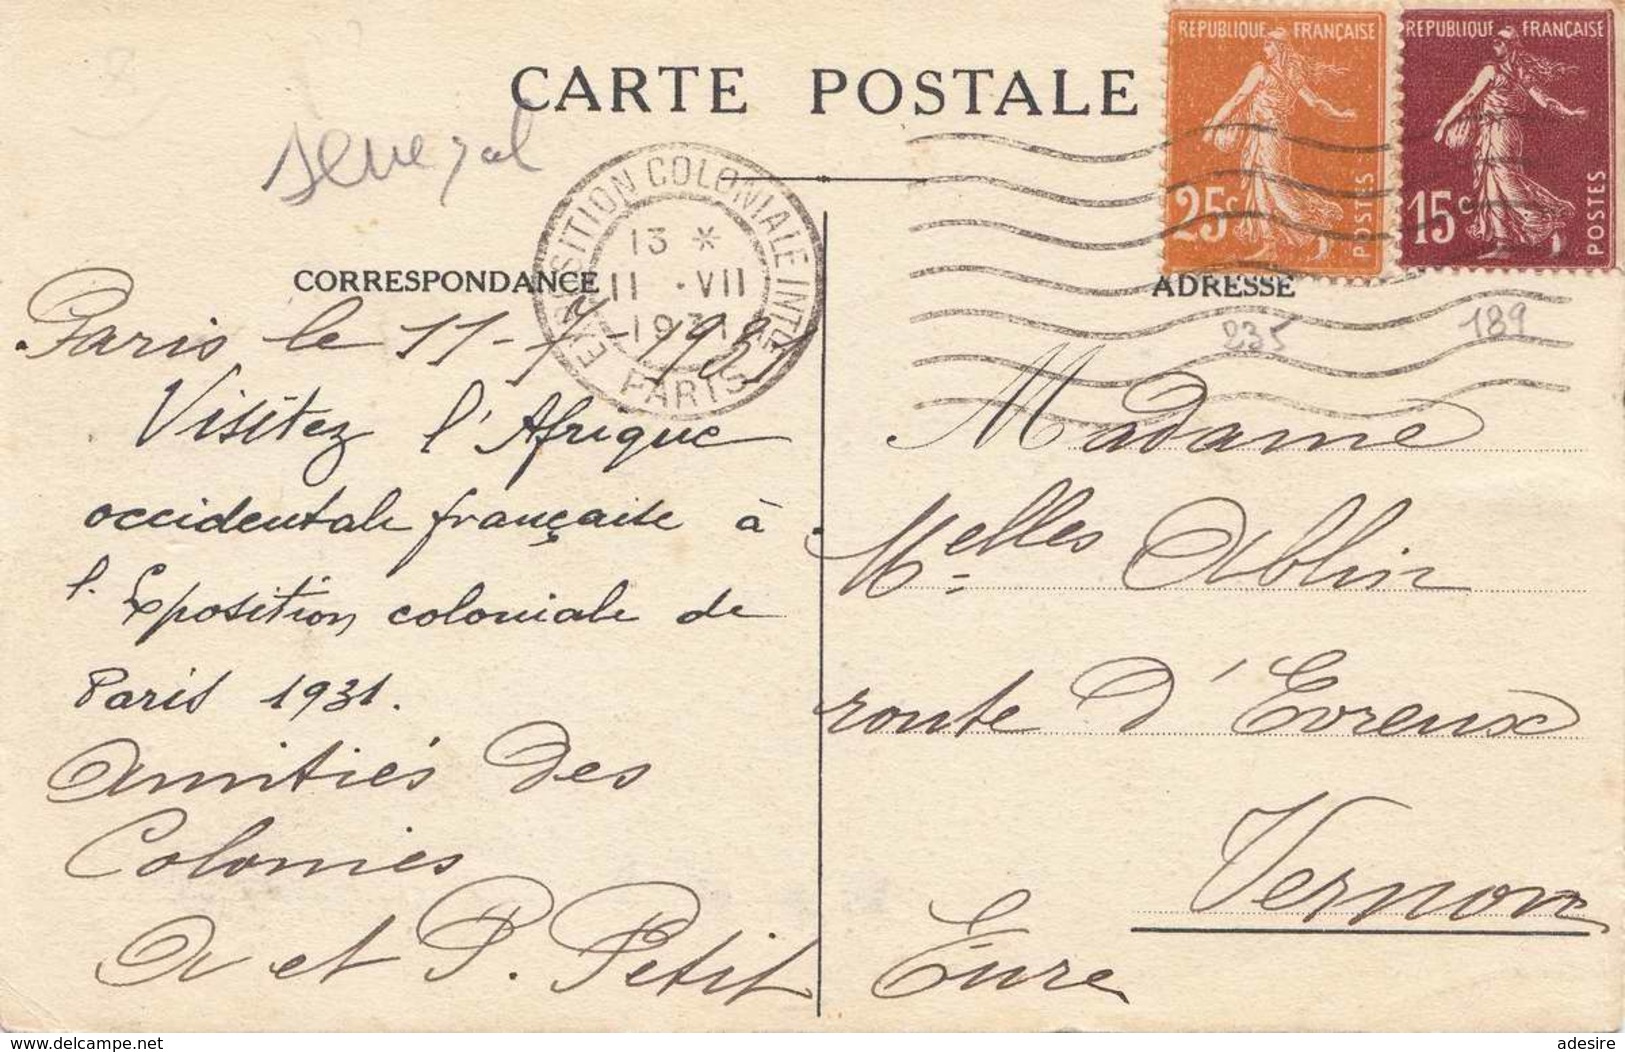 CARTE POSTALE
REPUBLIQUE FRANÇAISE
25c
POSTES
REPUBLIQUE FRANÇAISE
15c
POSTES
Senegal
EXPOSITION COLONIALE INTLE
PARIS
13 *
11 · VII
1931
CORRESPONDANCE
ADRESSE
235
189
Paris le 11-7-1931
Visitez l'Afrique
occidentale française à
l'Exposition coloniale de
Paris 1931.
Amitiés des
Colonies
A et P. Petit
Madame
Melles Ablin
route d'Evreux
Vernon
Eure
www.delcampe.net
adesire